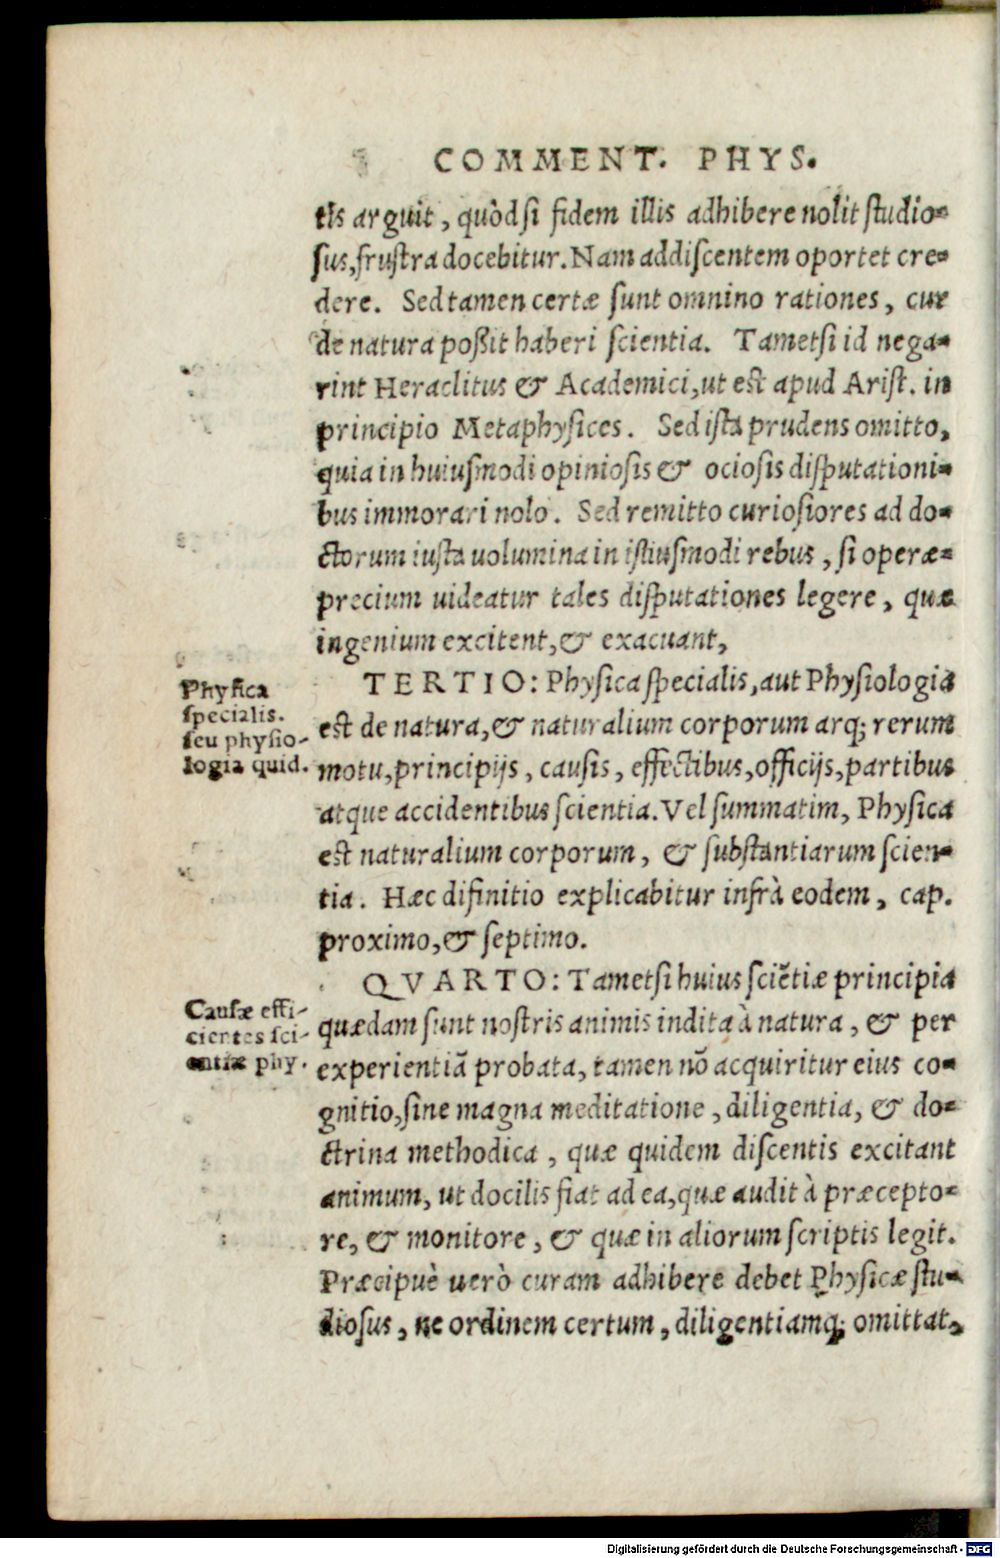 COMMENT. PHYS.
tis arguit, quòd si fidem illis adhibere nolit studio-
sus, frustra docebitur. Nam addiscentem oportet cre-
dere. Sed tamen certæ sunt omnino rationes, cur
de natura poßit haberi scientia. Tametsi id nega-
rint Heraclitus & Academici, ut est apud Arist. in
principio Metaphysices. Sed ista prudens omitto,
quia in huiusmodi opiniosis & ociosis disputationi-
bus immorari nolo. Sed remitto curiosiores ad do-
ctorum iusta uolumina in istiusmodi rebus, si operæ-
precium uideatur tales disputationes legere, quæ
ingenium excitent, & exacuant,
Physica
specialis.
seu physio-
logia quid.
TERTIO: Physica specialis, aut Physiologia
est de natura, & naturalium corporum atq; rerum
motu, principijs, causis, effectibus, officijs, partibus
atque accidentibus scientia. Vel summatim, Physica
est naturalium corporum, & substantiarum scien-
tia. Hæc difinitio explicabitur infrà eodem, cap.
proximo, & septimo.
Causæ effi-
cientes sci-
entiæ phy.
QVARTO: Tametsi huius sciẽtiæ principia
quædam sunt nostris animis indita à natura, & per
experientiã probata, tamen nõ acquiritur eius co-
gnitio, sine magna meditatione, diligentia, & do-
ctrina methodica, quæ quidem discentis excitant
animum, ut docilis fiat ad ea, quæ audit à præcepto-
re, & monitore, & quæ in aliorum scriptis legit.
Præcipuè uerò curam adhibere debet Physicæ stu-
diosus, ne ordinem certum, diligentiamq; omittat,
Digitalisierung gefördert durch die Deutsche Forschungsgemeinschaft - DFG